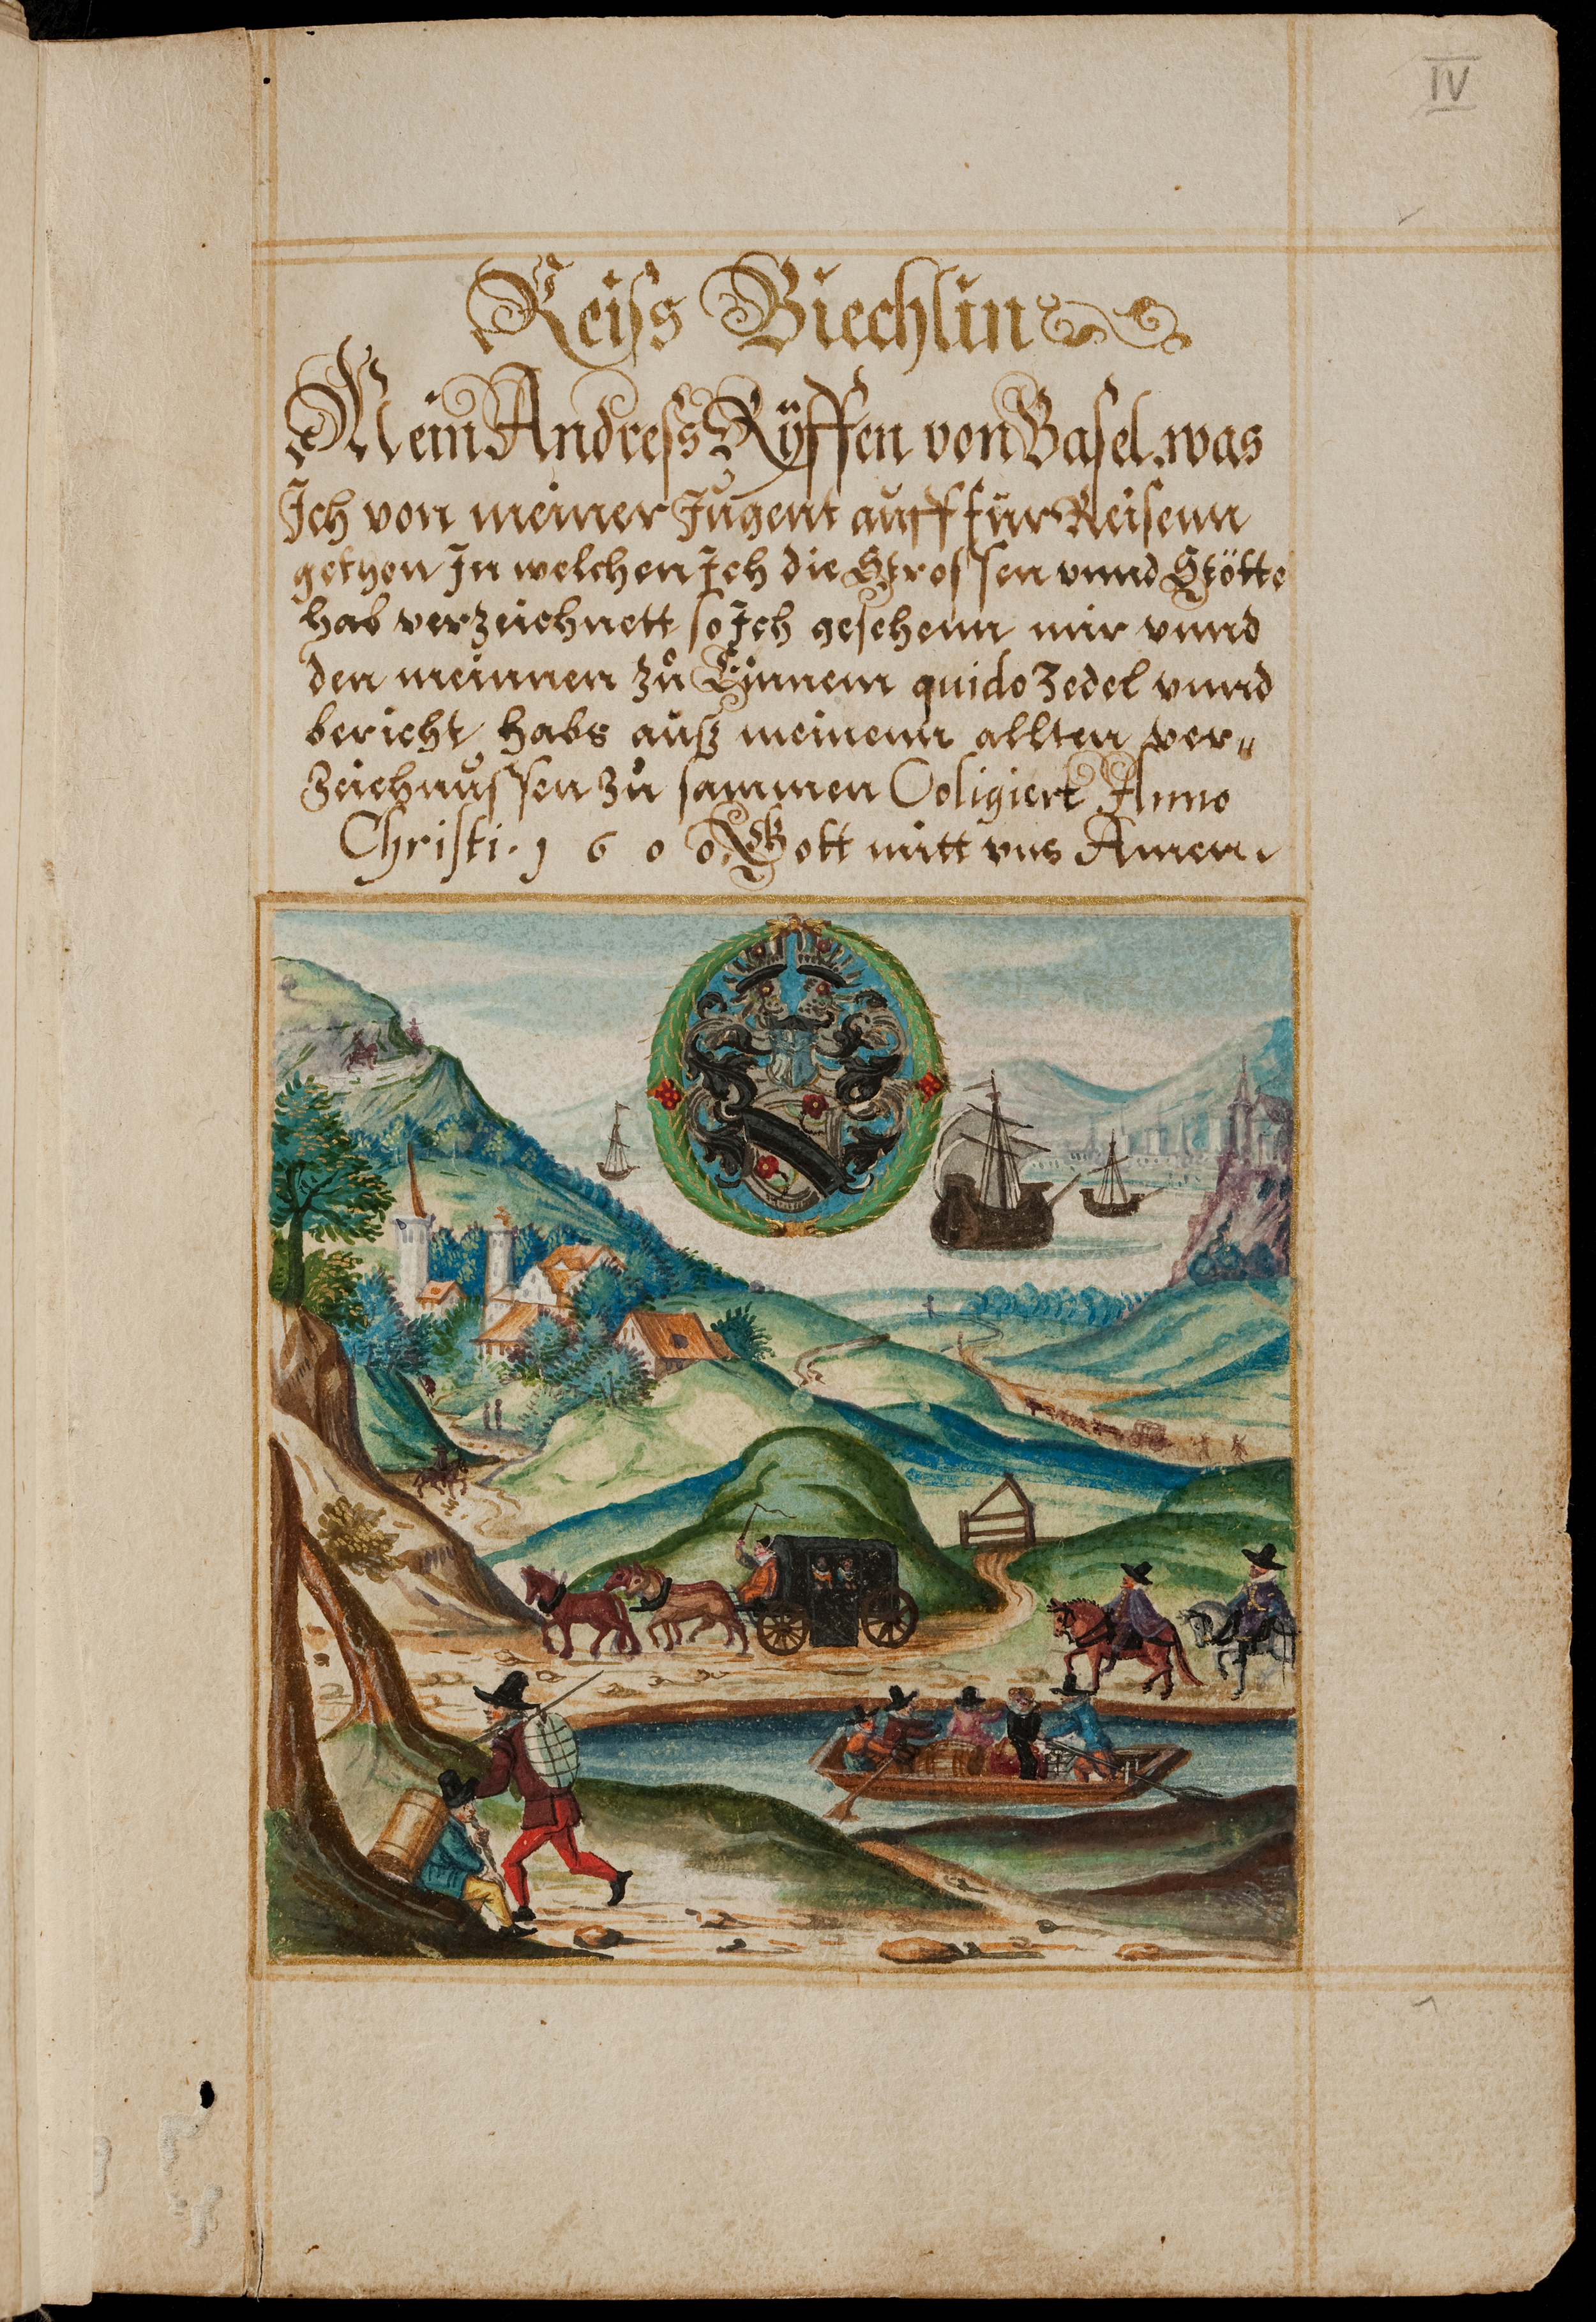 IV
Reiss Biechlin
Mein Andress Ryͤffen von Basel. was
Ich von meiner Jugent auff für Reisenn
gethon In welchen Ich die Strossen vnnd Stötte
hab verzeichnett so Ich gesehenn mir vnnd
den meinnen zů Einnem quido Zedel vnnd
bericht, habs auß meinenn allten ver„
zeichnussen zů sammen Coligiert Anno
Christi. 1600. Gott mitt vns Amen.